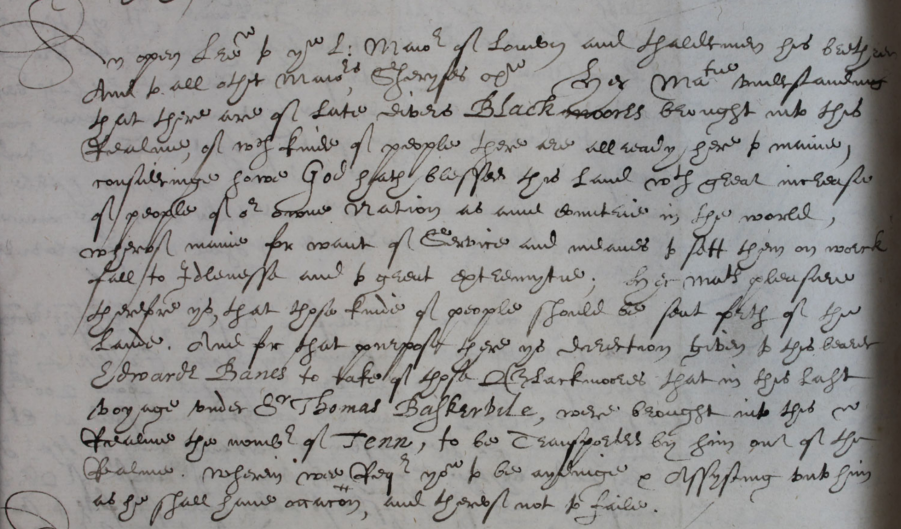 An open Lre to ye L: Maior of London and thaldermen his brethren
And to all other Maiors, Sheryfes &c. Her Matie understanding
that there are of late divers Blackmoores brought into this
Realme, of wch kinde of people there are allready here to manie,
consideringe howe God hath blessed this Land wth great increase
of people of or owne Nation as anie countrie in the world,
wherof manie for want of Service and meanes to sett them on worck
fall to Idlenesse and to great extremytie. Her Mats pleasure
therefore ys, that those kinde of people should be sent forth of the
Lande. And for that purpose there ys direction given to this bearer
Edwarde Banes to take of those Blackmoores that in this last
voyage under Sr Thomas Baskervile, were brought into this
Realme the nomber of Tenn, to be Transported by him out of the
Realme. Wherein wee Req you to be aydinge & Assysting unto him
as he shall have occacon, and thereof not to faile.